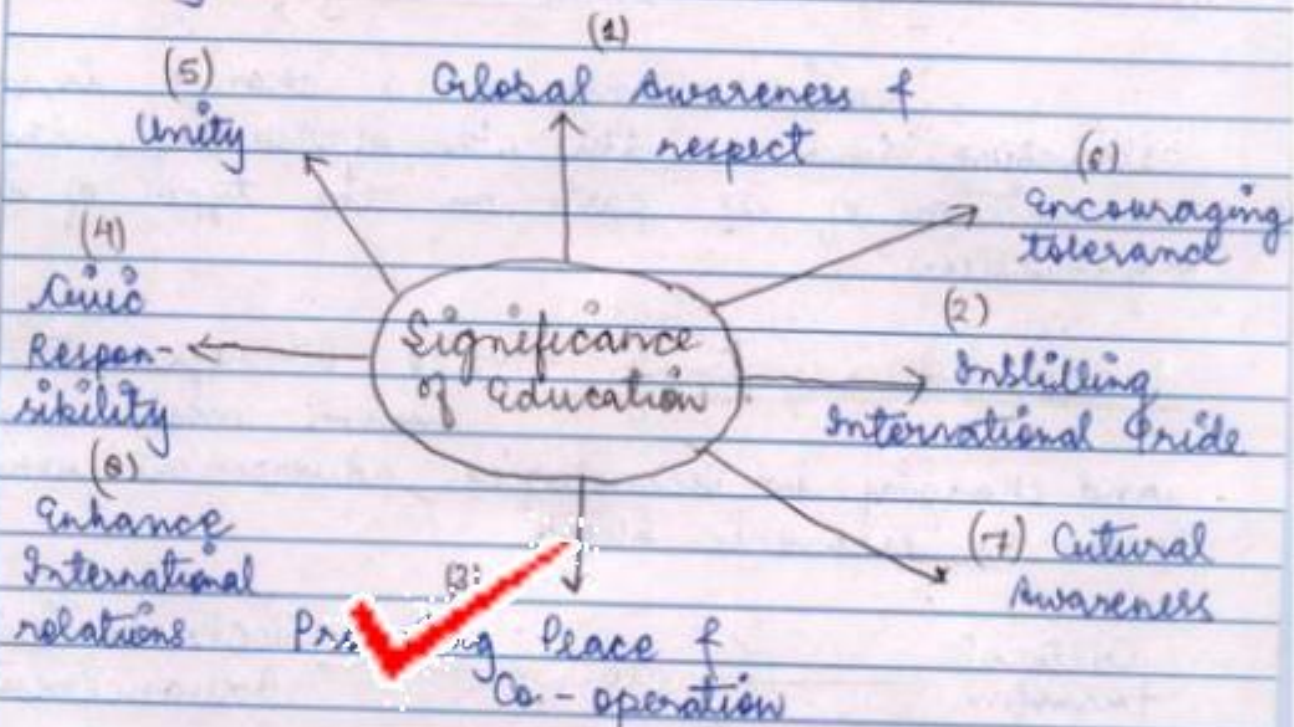 (1)
Global Awareness &
respect
(5)
Unity
(6)
Encouraging
tolerance
(4)
Civic
Respon-
sibility
Significance
of Education
(2)
Instilling
International Pride
(8)
Enhance
International
relations
(7) Cutural
Awareness
(3)
Peace &
Co-operation